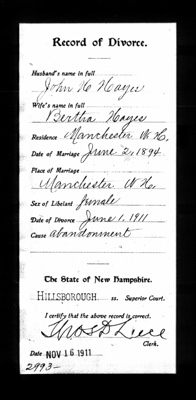 Record of Divorce.
Husband's name in full
John H Hayes
Wife's name in full
Bertha Hayes
Residence Manchester N.H.
Date of Marriage June 2, 1894.
Place of Marriage
Manchester N H
Sex of Libelant female
Date of Divorce June 1. 1911
Cause abandonment
The State of New Hampshire.
HILLSBOROUGH ss. Superior Court.
I certify that the above record is correct.
Thos D Luce
Clerk.
Date NOV 16 1911
2993-